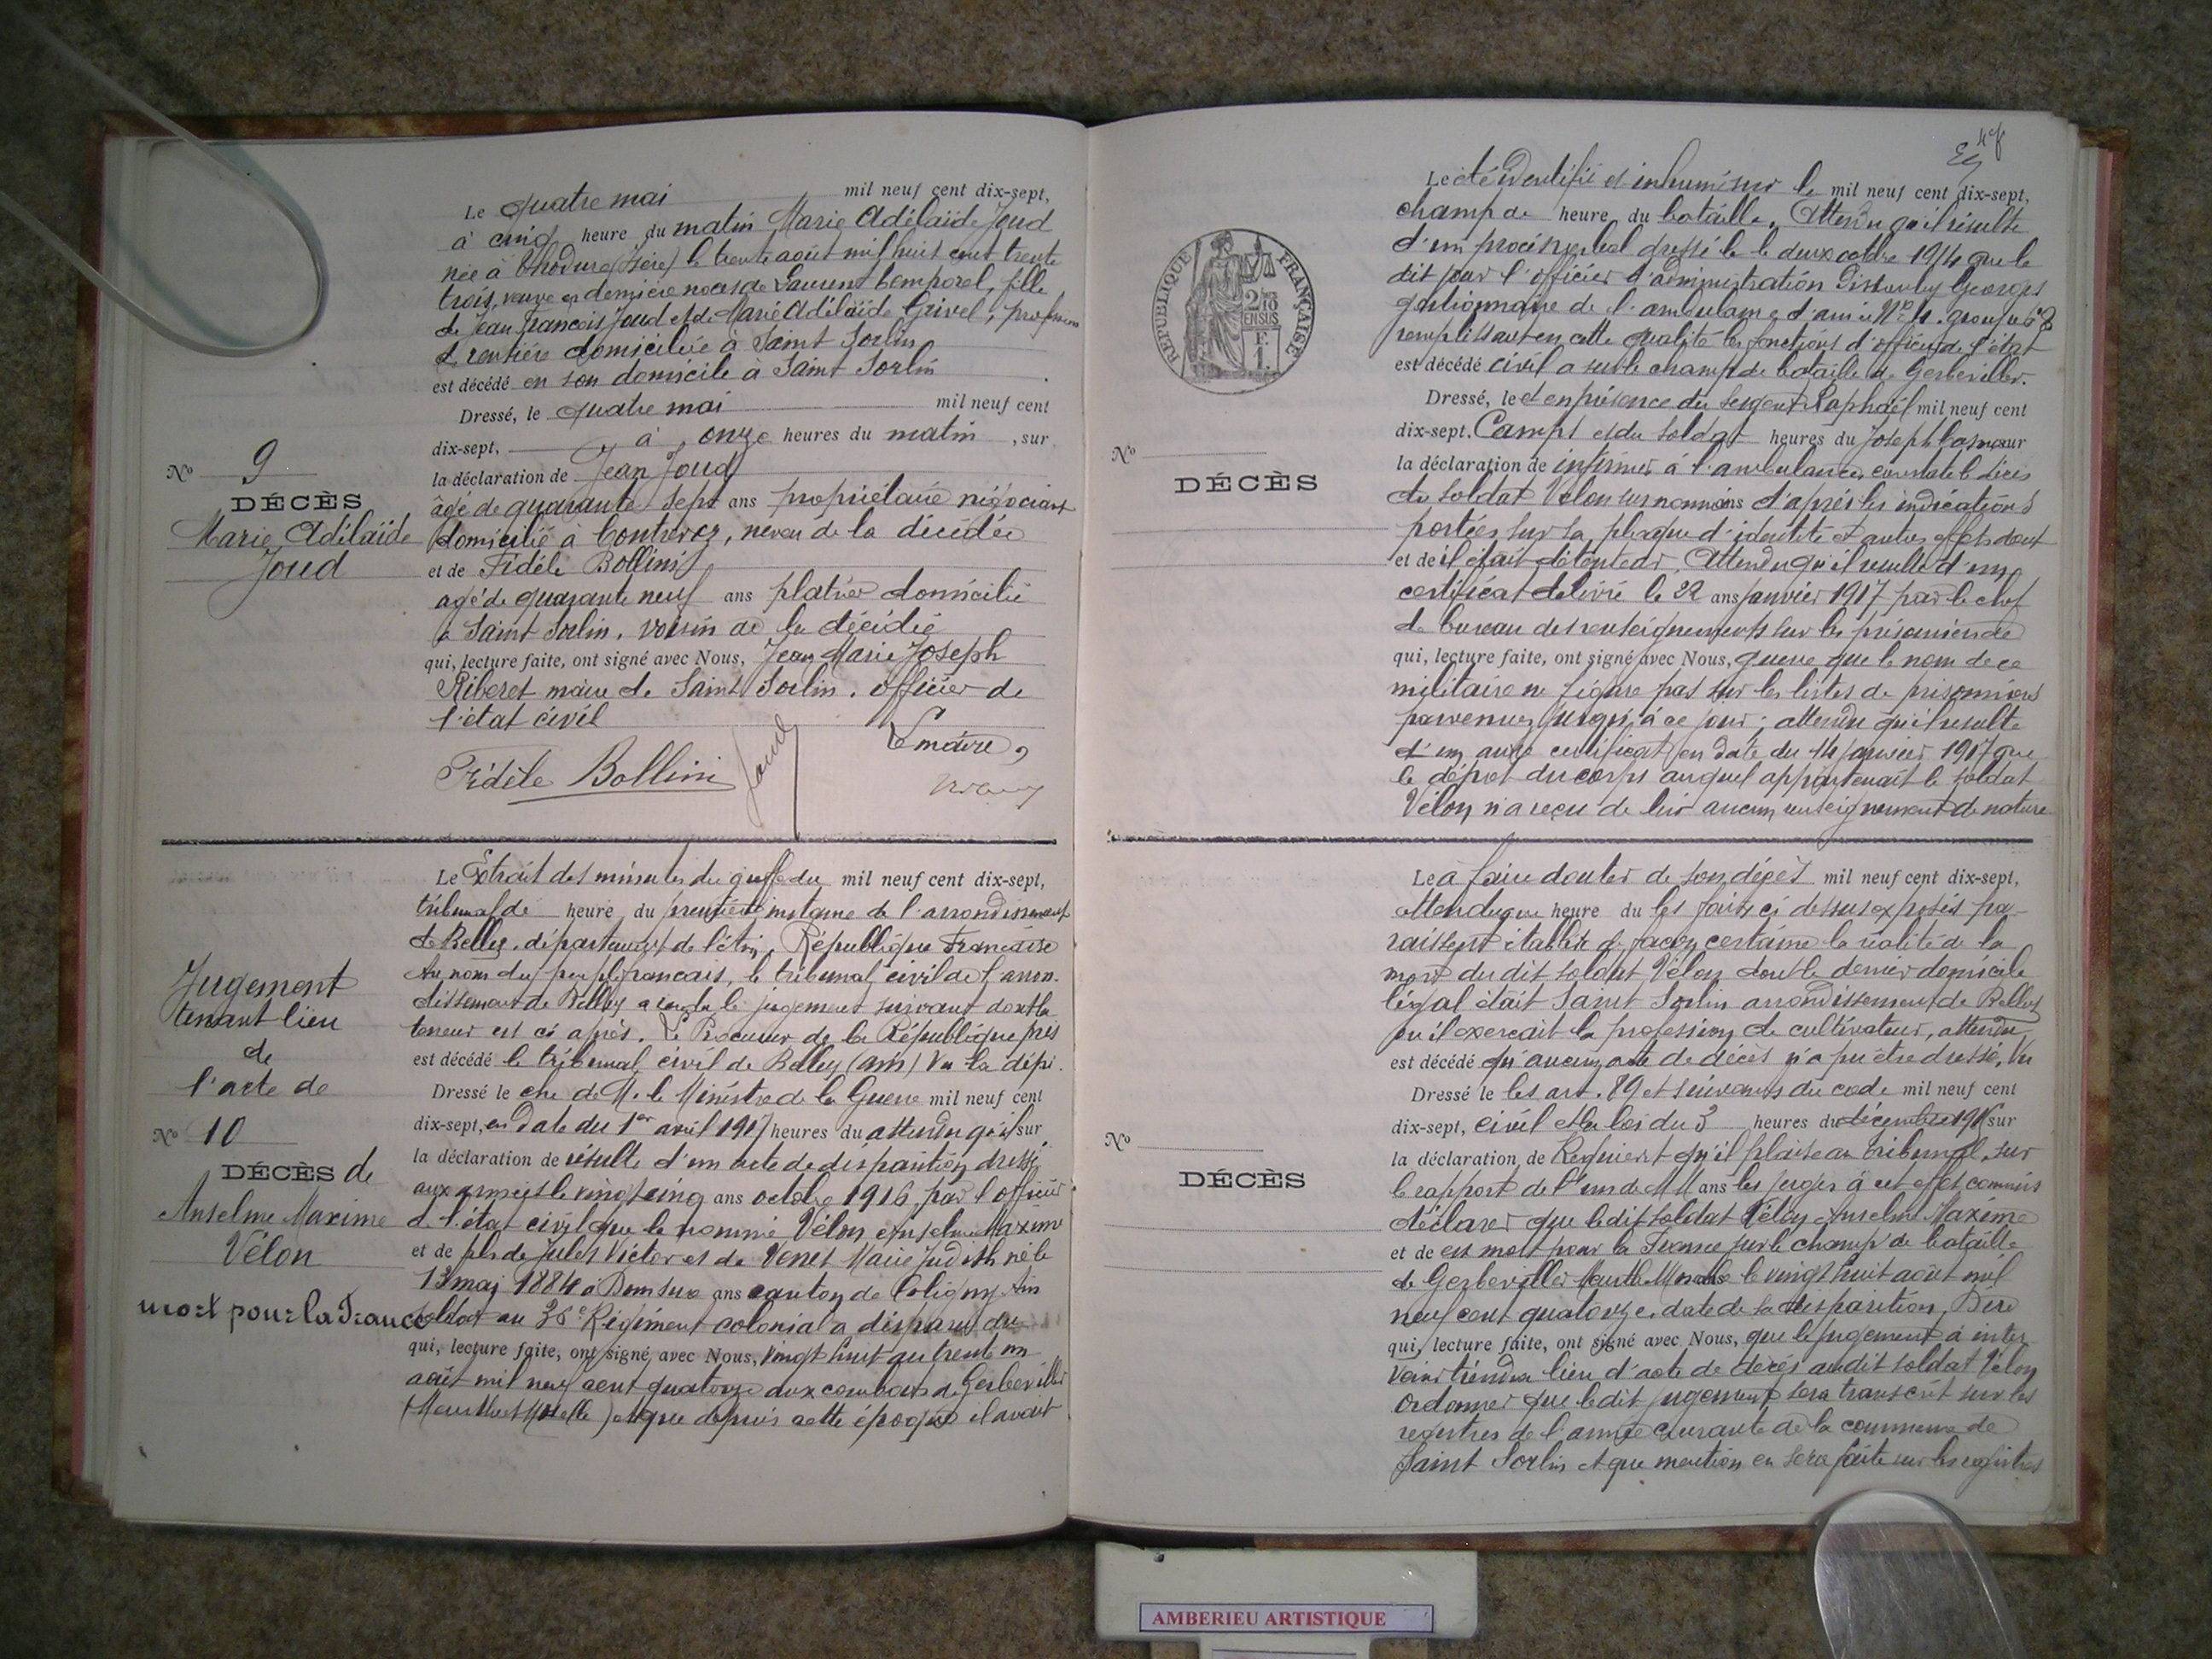 Le quatre mai mil neuf cent dix-sept,
à cinq heure du matin Marie Adélaïde Joud
née à Thodure (Isère) le trente août mil huit cent trente
trois, veuve en dernière noces de Laurent Temporel, fille
de Jean François Joud et de Marie Adélaïde Grivel, profession
de rentière domiciliée à Saint Sorlin
est décédé en son domicile à Saint Sorlin
Dressé, le quatre mai mil neuf cent
dix-sept, à onze heures du matin, sur
la déclaration de Jean Joud
âgé de quarante sept ans propriétaire négociant
domicilié à Contrevoz, neveu de la décédée
et de Fidèle Bollini
agé de quarante neuf ans platrier domicilié
à Saint Sorlin, voisin de la décédée
qui, lecture faite, ont signé avec Nous, Jean Marie Joseph
Riberet maire de Saint Sorlin, officier de
l'état civil
Le maire,
Fidèle Bollini Joud
N° 9
DÉCÈS
Marie Adélaïde
Joud
Jugement
tenant lieu
de
l'acte de
N° 10
DÉCÈS de
Anselme Maxime
Vélon
mort pour la France
Le Extrait des minutes du greffe du mil neuf cent dix-sept,
tribunal de heure du première instance de l'arrondissement
de Belley, département de l'Ain, République Française
Au nom du peuple français, le tribunal civil de l'arron-
dissement de Belley a rendu le jugement suivant dont la
teneur est ci après. Le Procureur de la République près
est décédé le tribunal civil de Belley (Ain) Vu la dépê-
Dressé le che de M. le Ministre de la Guerre mil neuf cent
dix-sept, en date du 1er avril 1917 heures du attendu qu'il sur
la déclaration de résulte d'un acte de disparition dressé
aux armées le vingt cinq ans octobre 1916 par l'officier
de l'état civil que le nommé Vélon Anselme Maxime
et de fils de Jules Victor et de Venet Marie Judith né le
13 mai 1884 à Domsure ans canton de Coligny Ain
soldat au 36e Régiment colonial a disparu du
qui, lecture faite, ont signé avec Nous, vingt huit au trente un
août mil neuf cent quatorze aux combats de Gerbeviller
(Meurthe et Moselle) et que depuis cette époque il avait
Le été identifié et inhumé sur le mil neuf cent dix-sept,
champ de heure du bataille, Attendu qu'il résulte
d'un procès verbal dressé le deux octobre 1914 que le
dit par l'officier d'administration Georges
gestionnaire de l'ambulance d'armée N° 4. groupe
remplissant en cette qualité les fonctions d'officier de l'état
est décédé civil a sur le champ de bataille de Gerbeviller.
Dressé, le et en présence du sergent Raphaël mil neuf cent
dix-sept. Camps et du soldat heures du Joseph sur
la déclaration de infirmier à l'ambulance, constaté le décès
du soldat Vélon susnommé ans d'après les indications
portées sur sa plaque d'identité et autres effets dont
et de il était détenteur. Attendu qu'il résulte d'un
certificat délivré le 22 ans janvier 1917 par le chef
de bureau des renseignements sur les prisonniers de
qui, lecture faite, ont signé avec Nous, guerre que le nom de ce
militaire ne figure pas sur les listes de prisonniers
parvenues jusqu'à ce jour; attendu qu'il résulte
d'un autre certificat en date du 14 janvier 1917 que
le dépôt du corps auquel appartenait le soldat
Vélon n'a reçu de lui aucun renseignement de nature
RÉPUBLIQUE FRANÇAISE
N°
DÉCÈS
Le à faire douter de son décès mil neuf cent dix-sept,
attendu que heure du les faits ci dessus exposés pa-
raissent établir de façon certaine la réalité de la
mort du dit soldat Vélon dont le dernier domicile
légal était Saint Sorlin arrondissement de Belley
ou il exerçait la profession de cultivateur, attendu
est décédé qu'aucun acte de décès n'a pu être dressé, Vu
Dressé le les art. 89 et suivants du code mil neuf cent
dix-sept, civil et la loi du 3 heures du décembre 1915 sur
la déclaration de Requiert qu'il plaise au tribunal, sur
le rapport de l'un de MM ans les juges à cet effet commis
déclarer que le dit soldat Vélon Anselme Maxime
et de est mort pour la France sur le champ de bataille
de Gerbeviller Meurthe Moselle ans le vingt huit août mil
neuf cent quatorze, date de sa disparition, Dire
qui, lecture faite, ont signé avec Nous, que le jugement à inter
venir tiendra lieu d'acte de décès au dit soldat Vélon
ordonner que le dit jugement sera transcrit sur les
registres de l'année courante de la commune de
Saint Sorlin et que mention en sera faite sur les registres
N°
DÉCÈS
AMBERIEU ARTISTIQUE